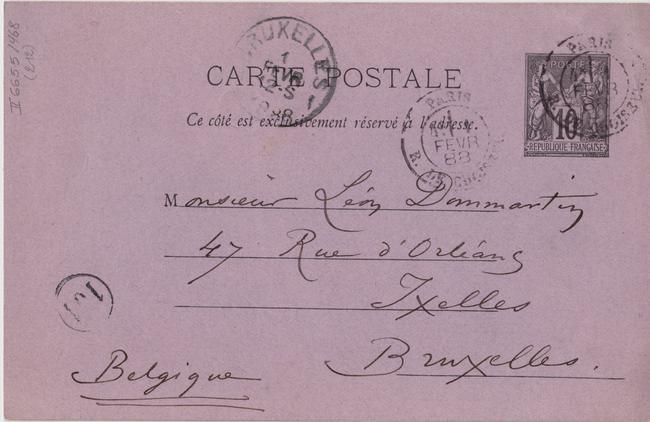 II 6655/468
(212)
BRUXELLES
1
FEVR
12-S
CARTE POSTALE
Ce côté est exclusivement réservé à l'adresse.
PARIS
FEVR
88
PARIS
FEVR
POSTES
10
REPUBLIQUE FRANÇAISE
Monsieur Léon Dommartin
47 Rue d'Orléans
Ixelles
Bruxelles.
Belgique